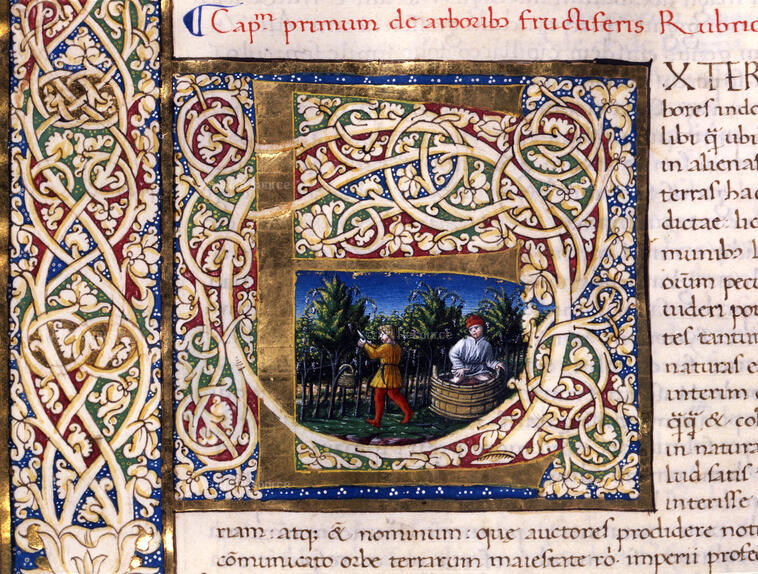 Cap.ᵐ primum de arboribꝰ fructiferis Rubric
EXTER
bores indo
libi q̃ ubi
in alienas
terras hac
dictae: lic
munibꝰ l
oium pecu
uideri pot
tes tantum
naturas e
interim c
q̃q̃ & col
in natura
lud satis
interisse
riam: atq; & nominum: que auctores prodidere noti
cōmunicato orbe terrarum maiestate ro. imperii profec